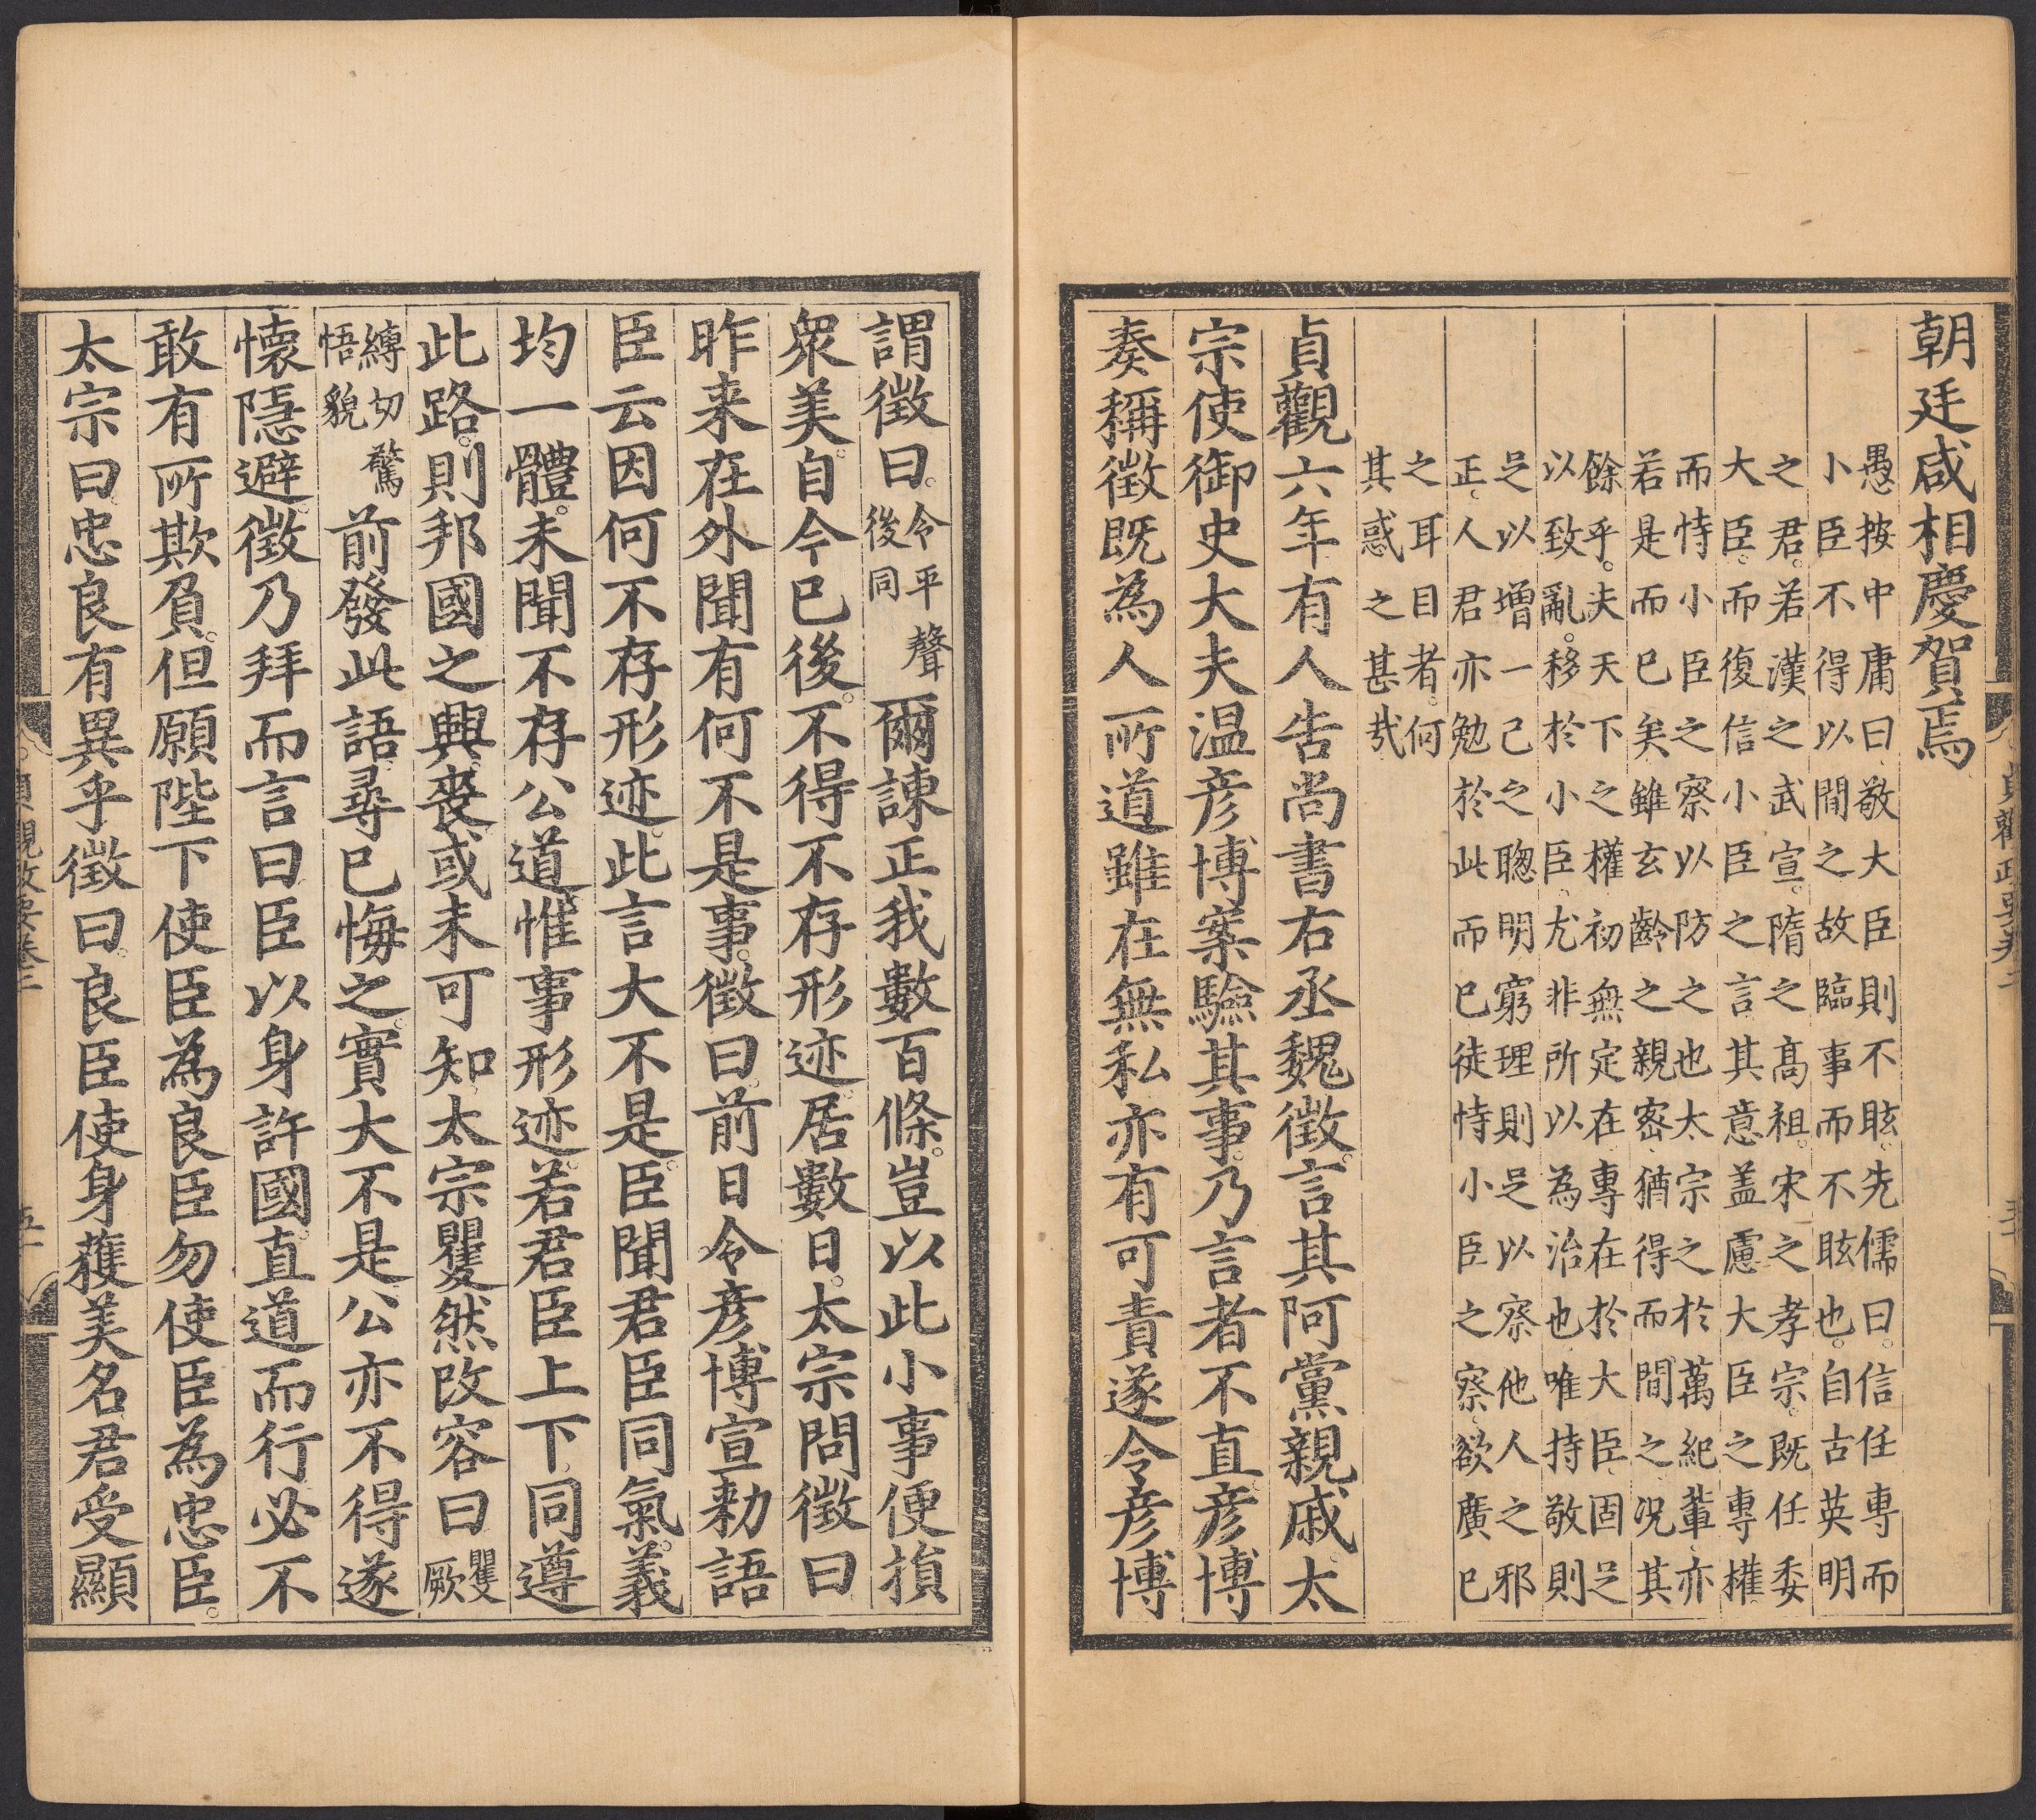 朝廷咸相慶賀焉
愚按中庸曰敬大臣則不眩先儒曰信任專而
小臣不得以間之故臨事而不眩也自古英明
之君若漢之武宣隋之高祖宋之孝宗既任委
大臣而復信小臣之言其意盖慮大臣之專權
而恃小臣之察以防之也太宗之於萬紀輩亦
若是而巳矣雖玄齡之親宻猶得而間之况其
餘乎夫天下之權初無定在專在於大臣固足
以致亂移於小臣尤非所以為治也唯持敬則
足以增一己之聰明窮理則足以察他人之邪
正人君亦勉於此而巳徒恃小臣之察欲廣巳
之耳目者何
其惑之甚㢤
貞觀六年有人告尚書右丞魏徵言其阿黨親戚太
宗使御史大夫温彦博案驗其事乃言者不直彦博
奏稱徵既為人所道雖在無私亦有可責遂令彦博
謂徵曰令平聲後同爾諫正我數百條豈以此小事便損
衆美自今巳後不得不存形迹居數日太宗問徵曰
昨来在外聞有何不是事徵曰前日令彦博宣勑語
臣云因何不存形迹此言大不是臣聞君臣同氣義
均一體未聞不存公道惟事形迹若君臣上下同遵
此路則邦國之興喪或未可知太宗矍然改容曰矍厥
縛切驚悟貌前發此語尋巳悔之實大不是公亦不得遂
懷隱避徵乃拜而言曰臣以身許國直道而行必不
敢有所欺負但願陛下使臣為良臣勿使臣為忠臣
太宗曰忠良有異乎徵曰良臣使身獲美名君受顯